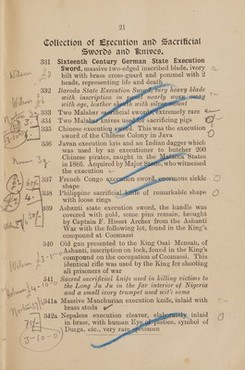 21
Collection of Execution and Sacrificial
Swords and Knives.
331 Sixteenth Century German State Execution
Sword, massive two-edged inscribed blade, ivory
hilt with brass cross-guard and pommel with 2
heads, representing life and death
332 Baroda State Execution Sword, very heavy blade
with inscription in
with age, leather sheath with silver mount
333 Two Malabar sacrificial swords, extremely rare
334 Two Malabar knives used sacrificing pigs
335 Chinese execution sword. This was the execution
sword of the Chinese Colony in Java
336 Javan execution kris and an Indian dagger which
was used by an executioner to butcher 200
Chinese pirates, caught in the Malacca States
in 1866. Acquired by Major who witnessed
the execution
337 French Congo execution sword, enormous sickle
shape
338 Philippine sacrificial knife of remarkable shape
with loose rings
339 Ashanti state execution sword, the handle was
covered with gold, some pins remain, brought
by Captain F. Hisset Archer from the Ashanti
War with the following lot, found in the King's
compound at Coomassi
340 Old gun presented to the King Osai Mensah, of
Ashanti, inscription on lock, found in the King's
compound on the occupation of Coomassi. This
identical rifle was used by the King for shooting
all prisoners of war
341 Sacred sacrificial knife used in killing victims to
the Long Ju Ju in the far interior of Nigeria
and a small ivory trumpet used with some
341a Massive Manchurian execution knife, inlaid with
brass studs
342a Nepalese execution cleaver, elaborately inlaid
in brass, with human Eye of passion, symbol of
Durga, etc., very rare specimen
3-10-0